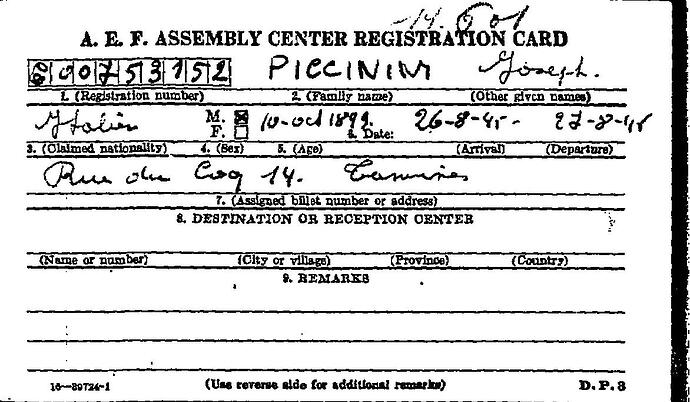 14. 501
A. E. F. ASSEMBLY CENTER REGISTRATION CARD
G00753152 PICCININI Joseph.
1. (Registration number) 2. (Family name) (Other given names)
Italien M. ☒ F. ☐ 10-oct 1899. 6. Date: 26-8-45- 27-8-45
3. (Claimed nationality) 4. (Sex) 5. (Age) (Arrival) (Departure)
Rue du Coq 14. Tamines
7. (Assigned billet number or address)
8. DESTINATION OR RECEPTION CENTER
(Name or number) (City or village) (Province) (Country)
9. REMARKS
16—39724-1 (Use reverse side for additional remarks) D. P. 3